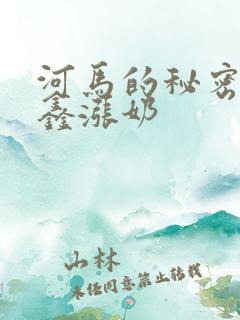 河马的秘密
鑫涨奶
山林
未经同意禁止转载